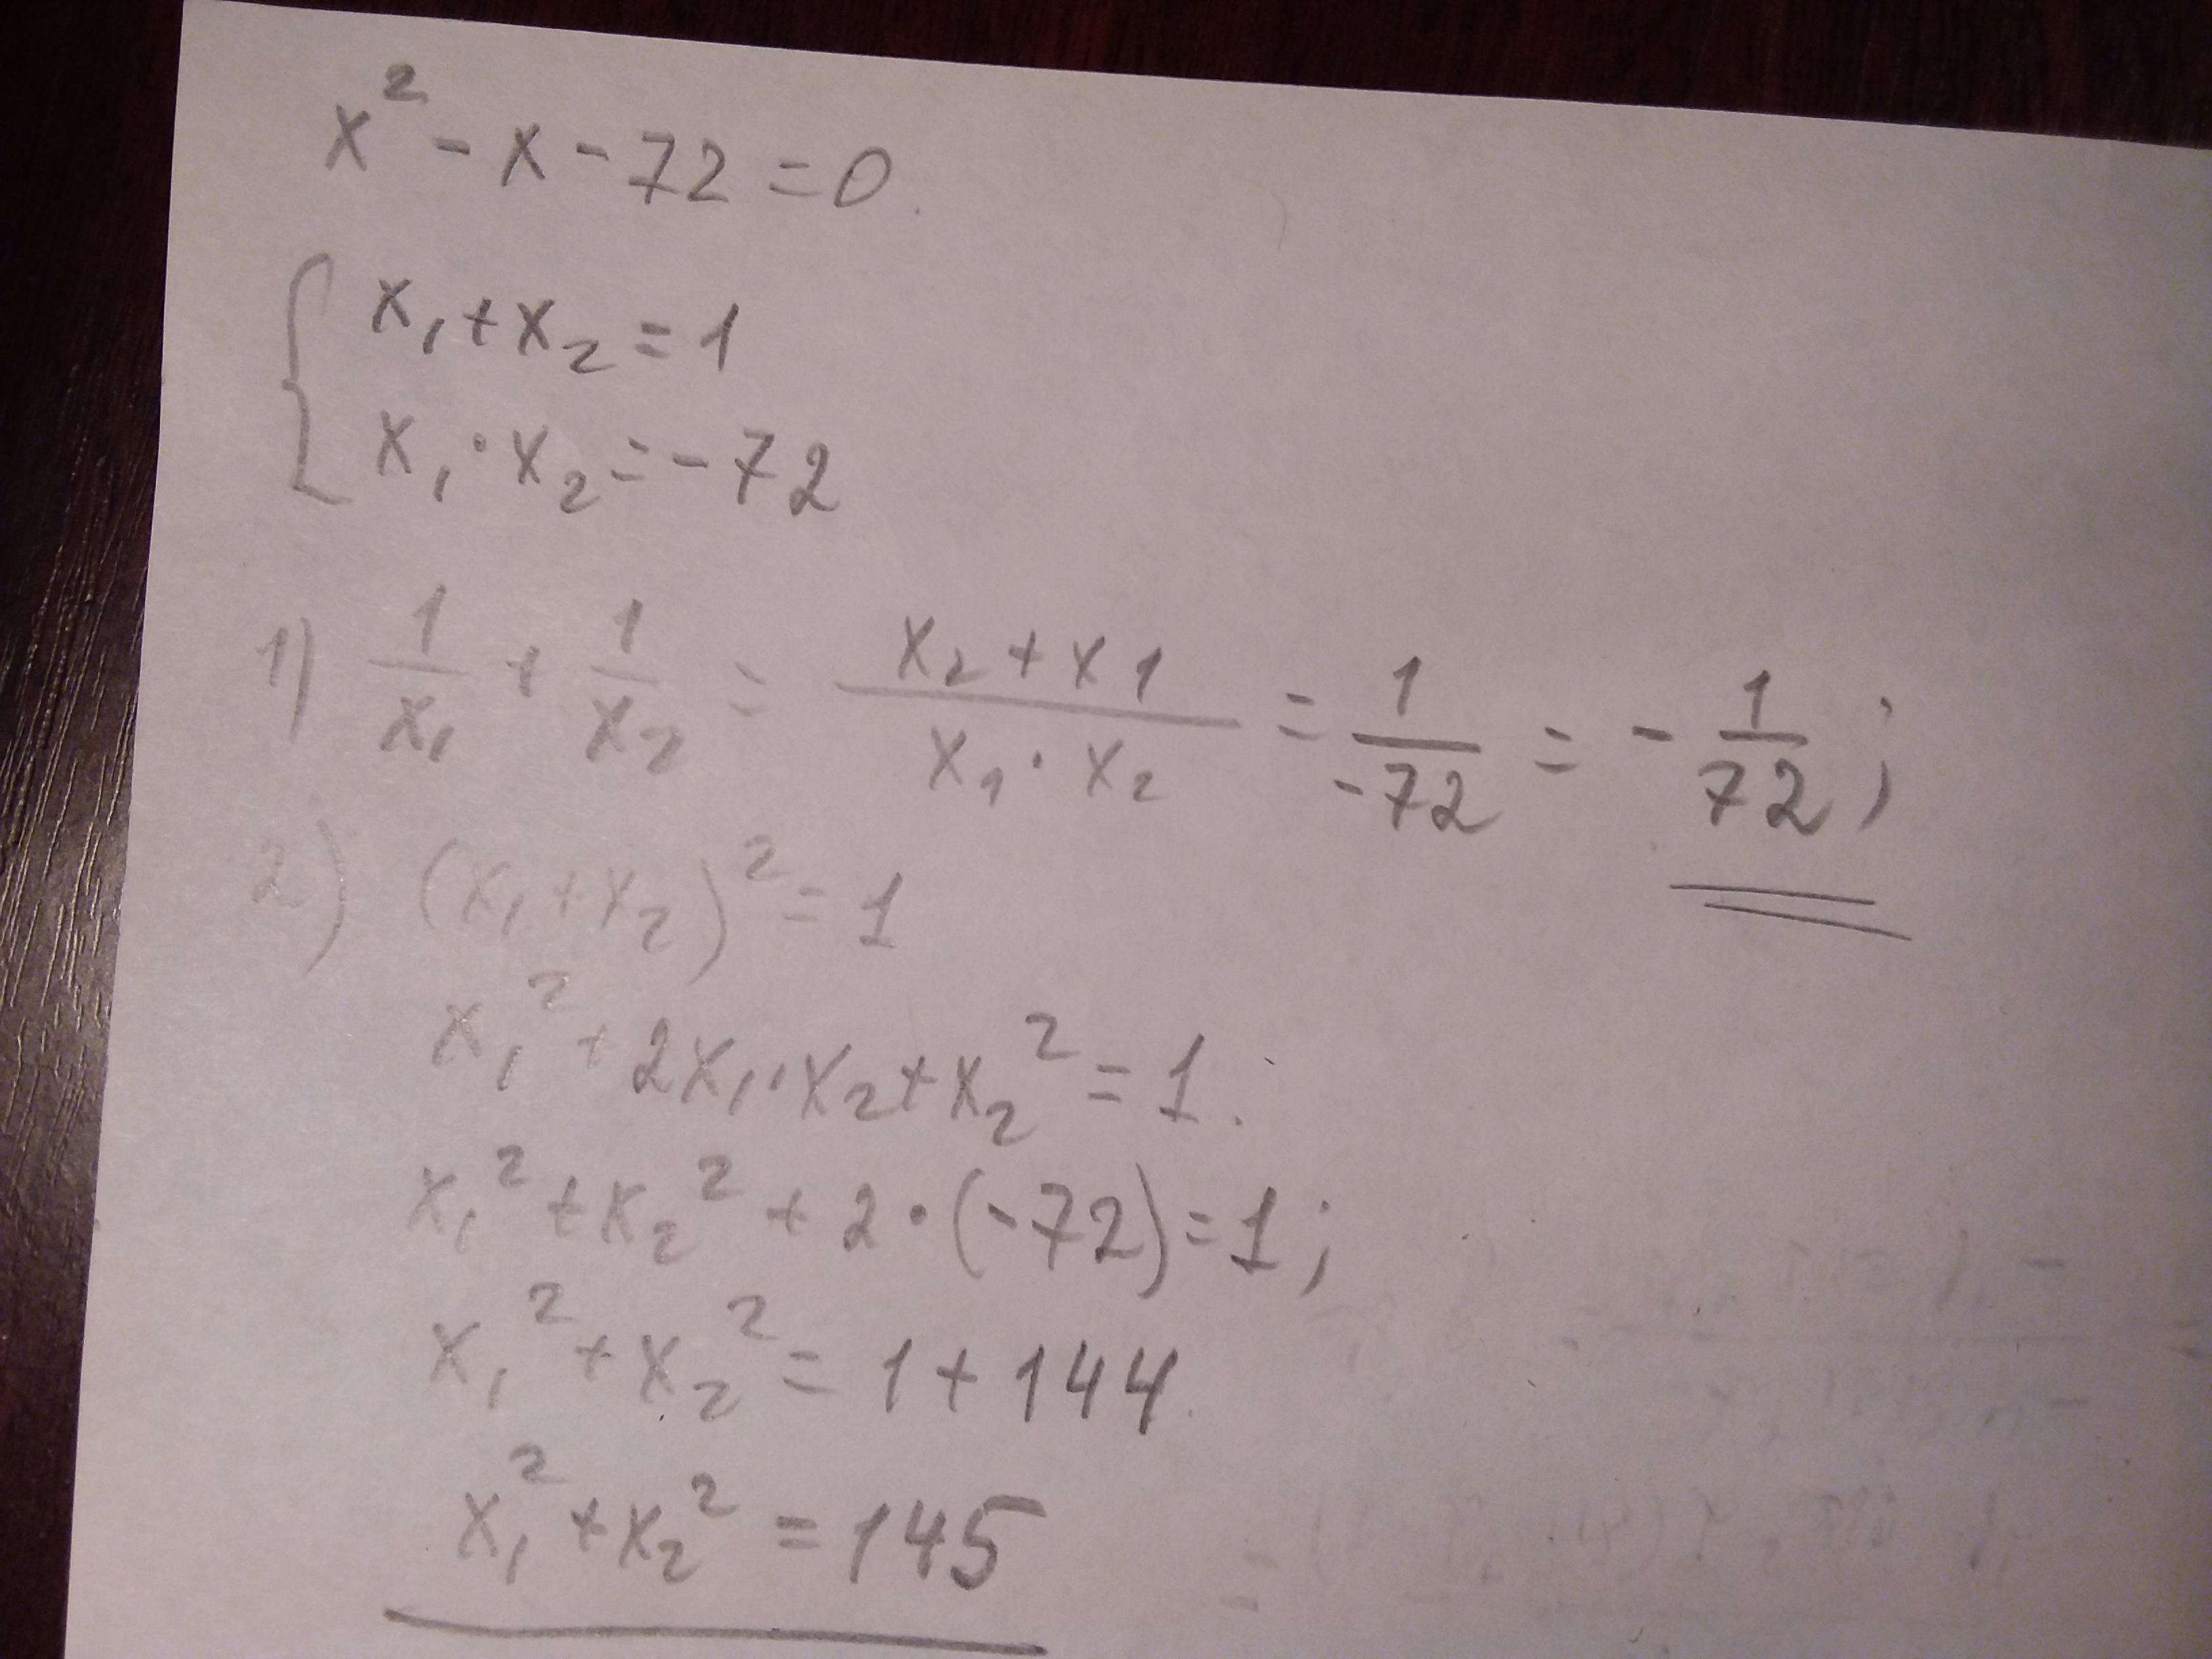 x² - x - 72 = 0.
{ x₁ + x₂ = 1
x₁ · x₂ = -72
1) 1/x₁ + 1/x₂ = (x₂ + x₁)/(x₁ · x₂) = 1/-72 = - 1/72 ;
2) (x₁ + x₂)² = 1
x₁² + 2x₁ · x₂ + x₂² = 1.
x₁² + x₂² + 2 · (-72) = 1 ;
x₁² + x₂² = 1 + 144.
x₁² + x₂² = 145